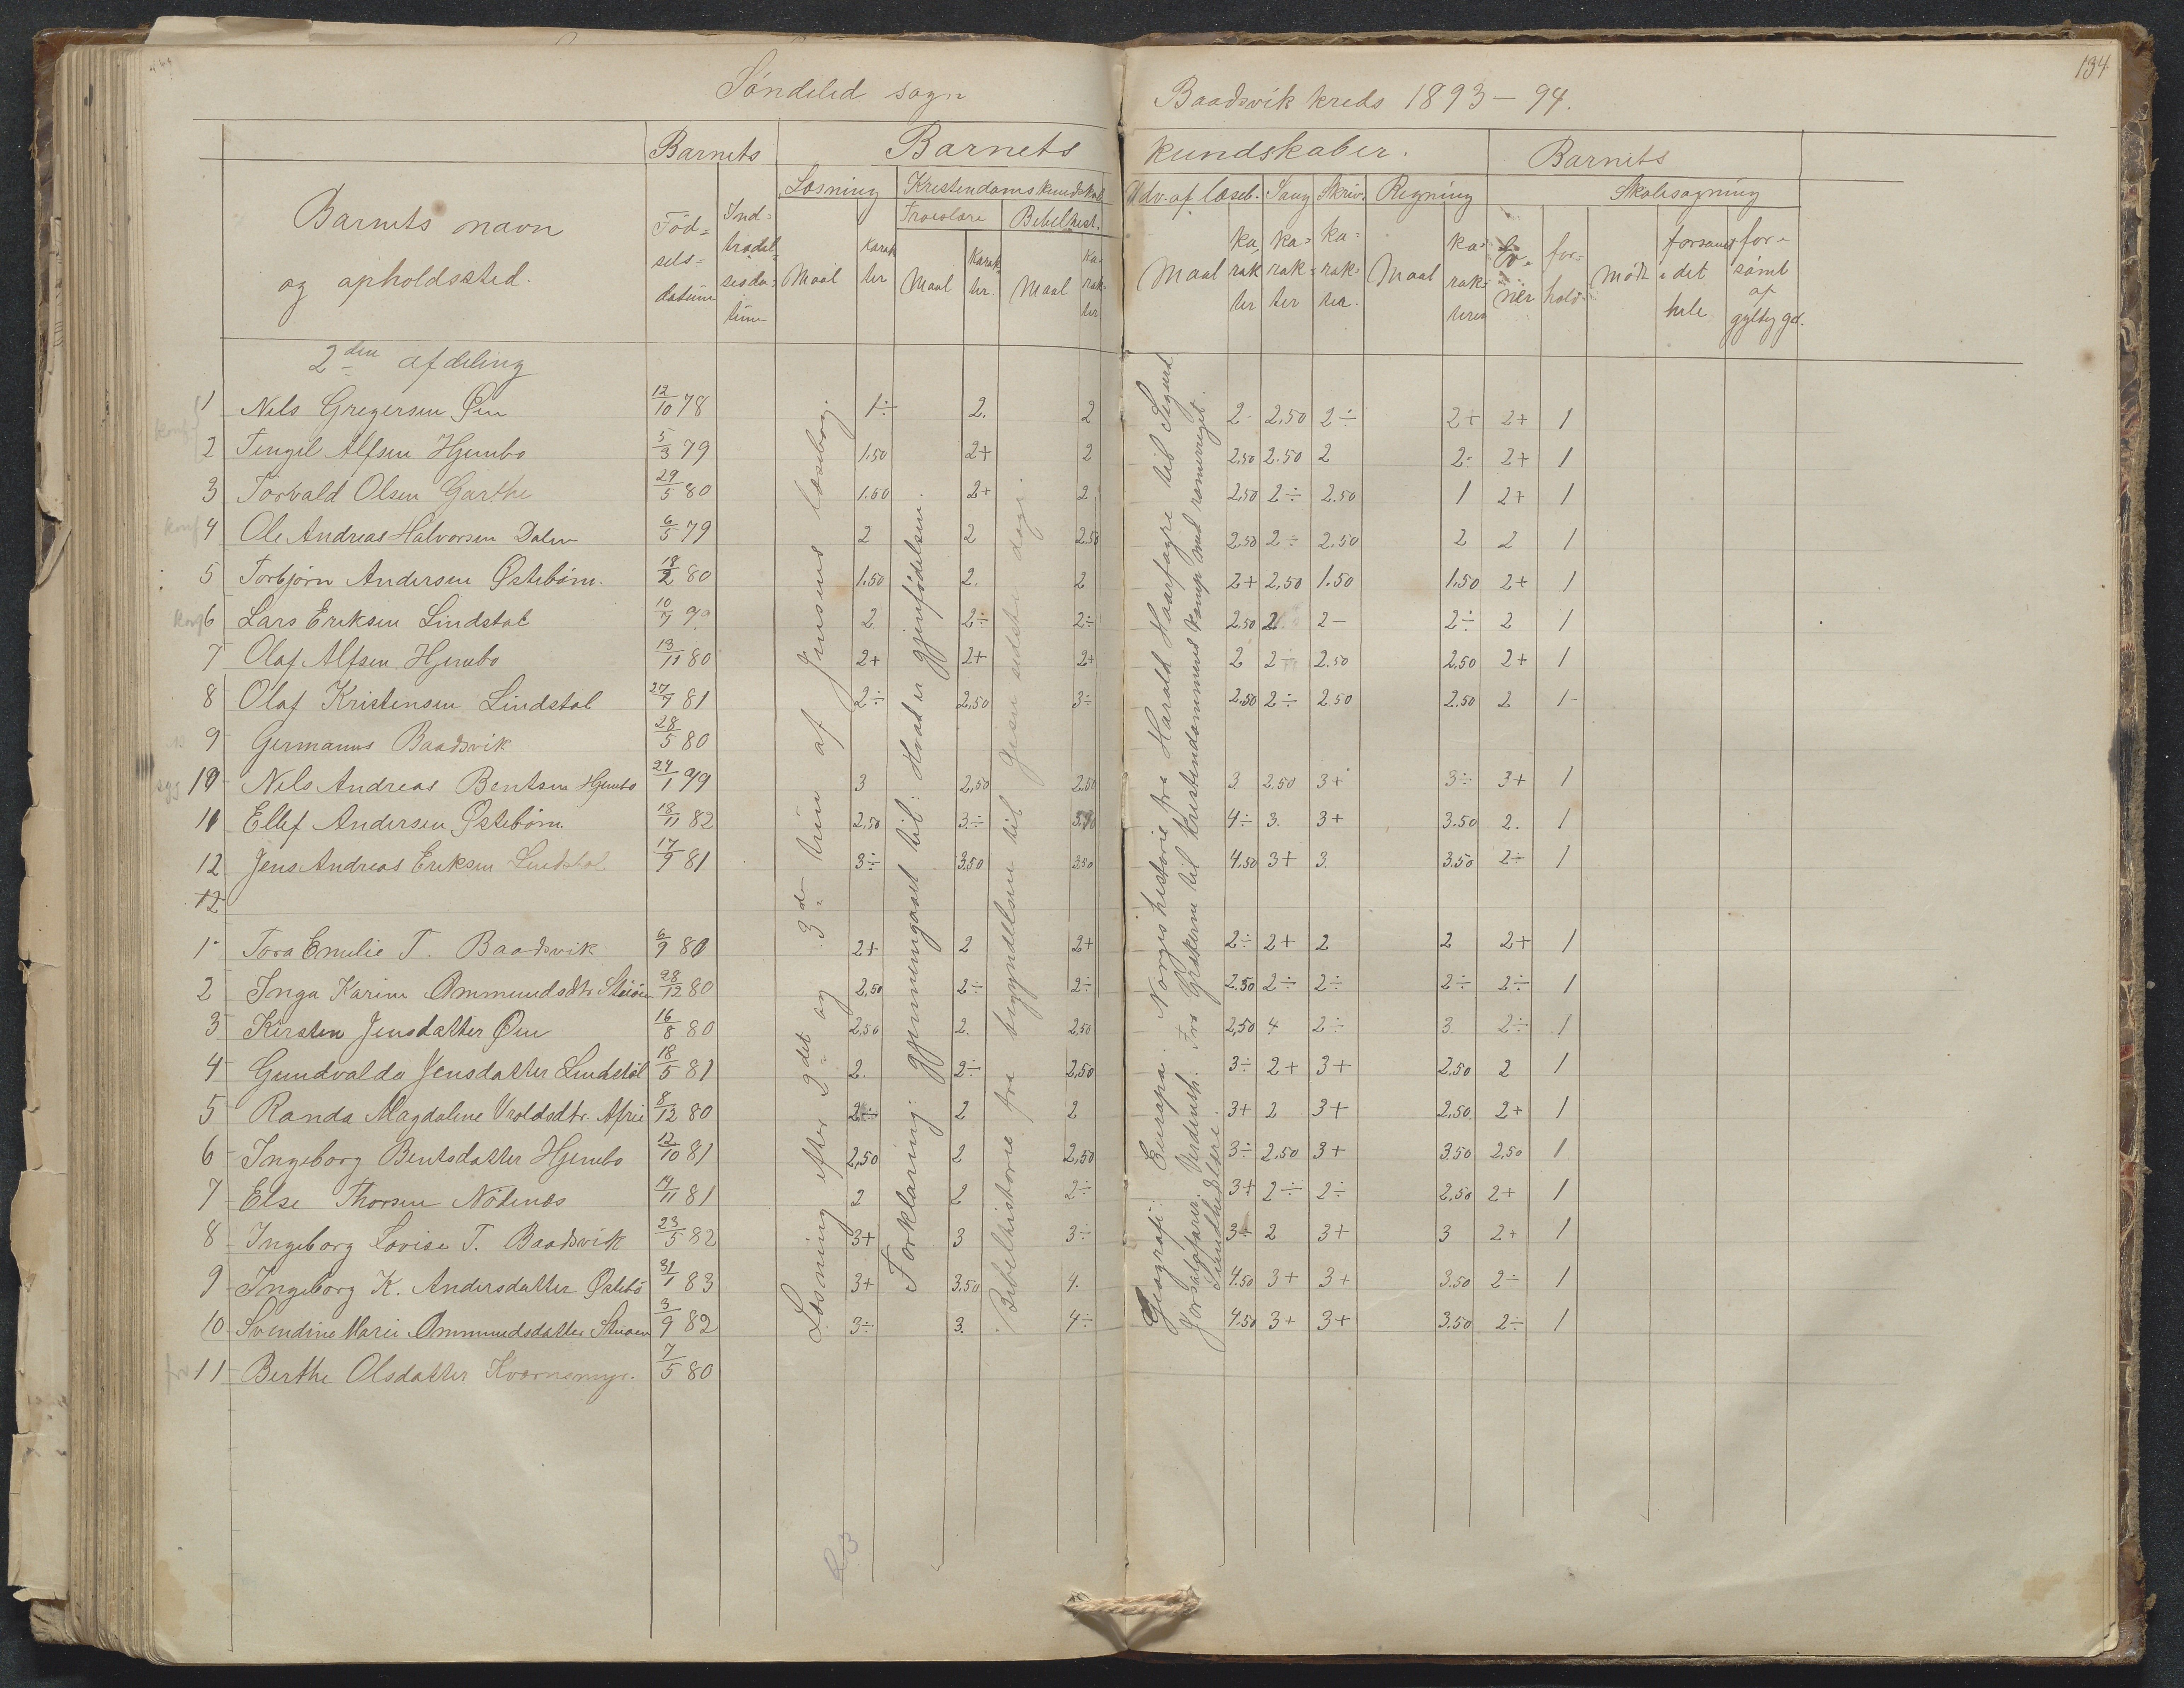 134
Søndeled sogn Baadsvik kreds 1893-94.
Barnets Barnets kundskaber. Barnets
Læsning Kristendomskundskab Udv. af læseb. Sang Skriv. Regning Skolesøgning
Barnets navn
og opholdssted.
Fød=
sels=
datum
Ind=
trædel=
sesda=
tum
Maal
Karak
ter
Troeslære
Maal
Karak
ter.
Bibelhist.
Maal
Ka-
rak-
ter
Maal
ka,
rak
ter
ka=
rak=
ter
ka=
rak=
ter.
Maal
ka=
rak=
terer
for=
hold
mødt
forsømt
i det
hele
for-
sømt
af
gyldig gd.
2den afdeling
1 Nils Gregersen Øen 12/10 78 1÷ 2. 2 2- 2,50 2÷ 2+ 2+ 1
konf
2 Tengel Alfsen Hjembo 5/3 79 1.50 2+ 2 2,50 2.50 2 2÷ 2+ 1
3 Torvald Olsen Garthe 29/5 80 1.50 2+ 2 2,50 2÷ 2.50 1 2+ 1
konf 4 Ole Andreas Halvorsen Dalen 6/5 79 2 2 2,50 2,50 2÷ 2.50 2 2 1
5 Torbjørn Andersen Østebøm. 18/2 80 1.50 2. 2 2+ 2,50 1.50 1.50 2+ 1
6 Lars Eriksen Lindstøl 10/7 79 2 2÷ 2÷ 2.50 2 2- 2÷ 2 1
7 Olaf Alfsen Hjembo 13/11 80 2+ 2+ 2+ 2 2÷ 2.50 2,50 2+ 1
8 Olaf Kristensen Lindstøl 27/7 81 2÷ 2,50 3÷ 2.50 2÷ 2.50 2.50 2 1-
9 Germanus Baadsvik 28/5 80
10 Nils Andreas Bentsen Hjembo 24/1 79 3 2,50 2.50 3 2.50 3+ 3÷ 3+ 1
11 Ellef Andersen Østebøm. 18/11 82 2,50 3÷ 3,50 4÷ 3. 3+ 3.50 2. 1
12 Jens Andreas Eriksen Lindstøl 17/9 81 3÷ 3.50 3.50 4.50 3+ 3. 3.50 2÷ 1
12
1 Tora Emilie T. Baadsvik 6/9 80 2+ 2 2+ 2÷ 2+ 2 2 2+ 1
2 Inga Karine Ommundsdtr Stuøen 28/12 80 2,50 2÷ 2÷ 2.50 2÷ 2÷ 2÷ 2÷ 1
3 Kirsten Jensdatter Øen 16/8 80 2,50 2. 2,50 2,50 4 2÷ 3. 2÷ 1
4 Gundvalda Jensdatter Lindstøl 18/5 81 2. 2÷ 2,50 3÷ 2+ 3+ 2.50 2 1
5 Randa Magdaline Vroldsdtr. Afrie 8/12 80 2÷ 2 2 3+ 2 3+ 2,50 2+ 1
6 Ingeborg Bentsdatter Hjembo 12/10 81 2,50 2 2,50 3÷ 2.50 3+ 3.50 2,50 1
7 Else Thorsen Nødenæs 14/11 81 2 2 2÷ 3+ 2÷ 2÷ 2,50 2+ 1
8 Ingeborg Lovise T. Baadsvik 23/5 82 3+ 3 3÷ 3÷ 2 3+ 3 2+ 1
9 Ingeborg K. Andersdatter Østebø 31/1 83 3+ 3.50 4. 4.50 3+ 3+ 3.50 2÷ 1
10 Svendine Marie Ommundsdatter Stuøen 3/9 82 3÷ 3. 4÷ 4.50 3+ 3+ 3.50 2÷ 1
11 Berthe Olsdatter Kværnsmyr. 7/5 80
Læsning efter 2det og 3de trin af Jensens læsebog.
Forklaring: gjennemgaaet til: Hvad er gjenfødelsen.
Bibelhistorie fra begyndelsen til Jesu sidste dage.
Geografi: Europa. Norges historie fra Harald Haarfagre til Sigurd
Jorsalafarer. Verdensh. Fra Grækerne til kristendommens kamp med romerriget.
Sundhedslære.
23